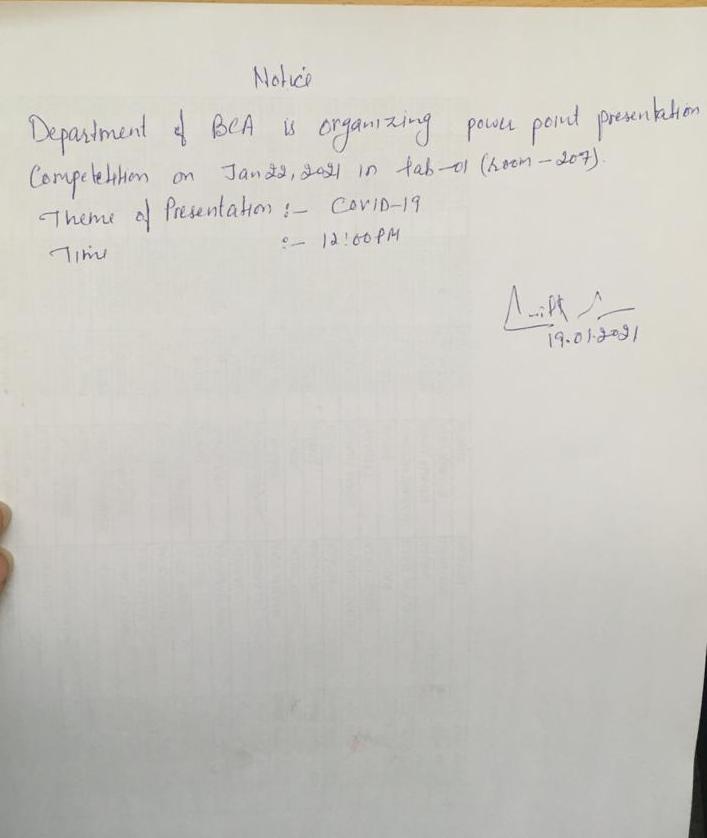 Notice
Department of BCA is organizing power point presentation
Competetition on Jan 22, 2021 in Lab-01 (Room-207).
Theme of Presentation :- COVID-19
Time :- 12:00 PM
19.01.2021